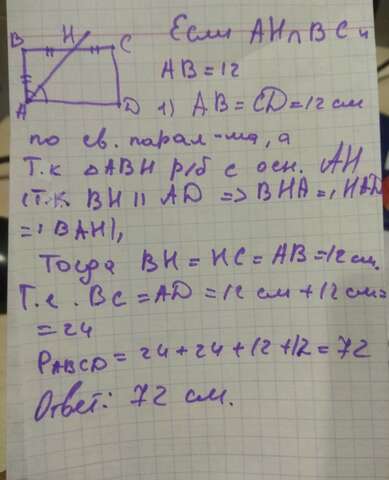 Если AH∩BC и
B H C
AB=12
A D 1) AB=CD=12 см
по св. парал-ма, а
Т.к △ABH р/б с осн. AH
(т.к BH || AD => BHA=, HAD
=, BAH),
Тогда BH=HC=AB=12 см.
Т.е. BC=AD=12 см+12 см=
=24
PABCD=24+24+12+12=72
Ответ: 72 см.